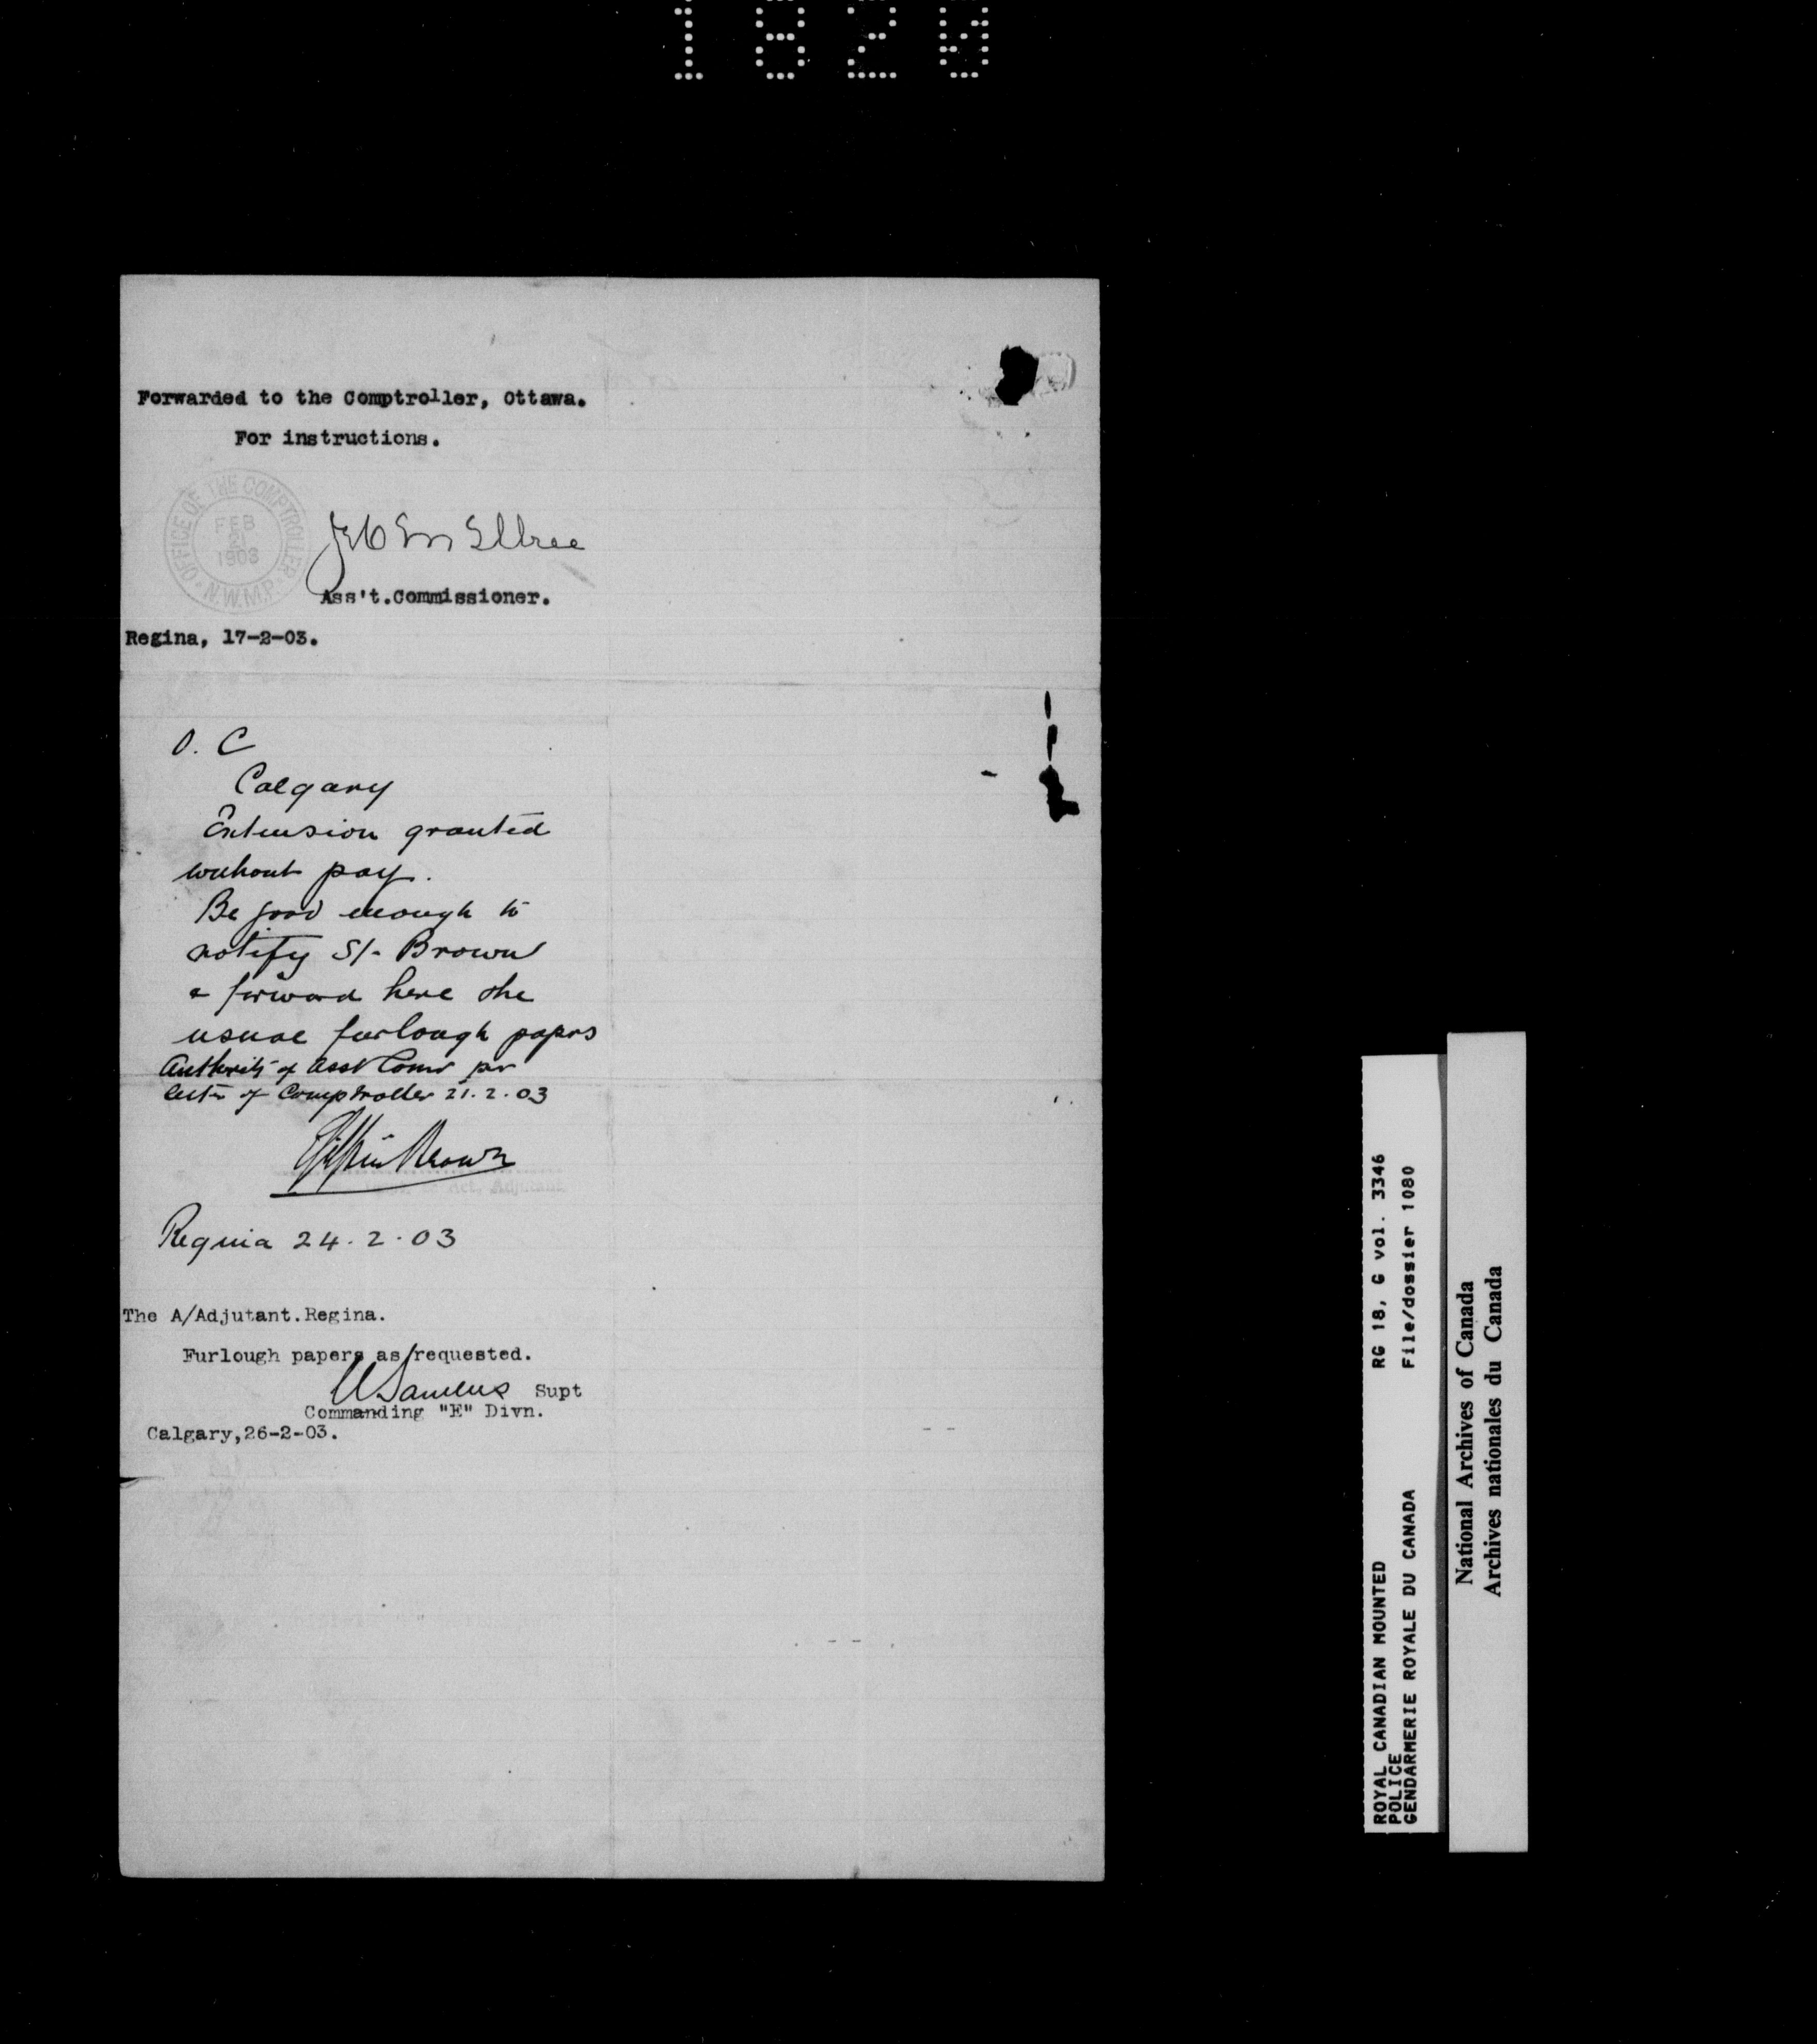 1820
Forwarded to the Comptroller, Ottawa.
For instructions.
OFFICE OF THE COMPTROLLER
FEB
21
1903
N.W.M.P.
Ass't.Commissioner.
Regina, 17-2-03.
O. C
Calgary
Extension granted
without pay.
Be good enough to
notify S/- Brown
& forward here the
usual furlough papers
Authority of Asst Comr per
letter of Comptroller 21.2.03
Act. Adjutant
Regina 24.2.03
The A/Adjutant.Regina.
Furlough papers as/requested.
Supt
Commanding "E" Divn.
Calgary,26-2-03.
ROYAL CANADIAN MOUNTED RG 18, G vol. 3346
POLICE
GENDARMERIE ROYALE DU CANADA File/dossier 1080
National Archives of Canada
Archives nationales du Canada